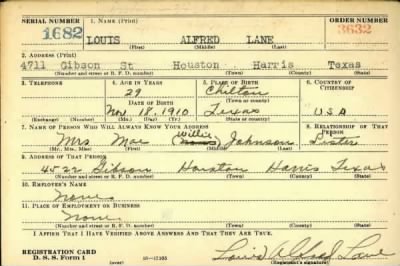 SERIAL NUMBER 1. NAME (Print) ORDER NUMBER
1682 LOUIS ALFRED LANE 3632
(First) (Middle) (Last)
2. ADDRESS (Print)
4711 Gibson St Houston Harris Texas
(Number and street or R. F. D. number) (Town) (County) (State)
3. TELEPHONE 4. AGE IN YEARS 5. PLACE OF BIRTH 6. COUNTRY OF CITIZENSHIP
29 Chilton
(Town or county)
DATE OF BIRTH
Nov 18, 1910 Texas USA
(Exchange) (Number) (Mo.) (Day) (Yr.) (State or country)
7. NAME OF PERSON WHO WILL ALWAYS KNOW YOUR ADDRESS 8. RELATIONSHIP OF THAT PERSON
Willie
Mrs Mae Johnson Sister
(Mr., Mrs., Miss) (First) (Middle) (Last)
9. ADDRESS OF THAT PERSON
4522 Gibson Houston Harris Texas
(Number and street or R. F. D. number) (Town) (County) (State)
10. EMPLOYER'S NAME
None
11. PLACE OF EMPLOYMENT OR BUSINESS
None
(Number and street or R. F. D. number) (Town) (County) (State)
I AFFIRM THAT I HAVE VERIFIED ABOVE ANSWERS AND THAT THEY ARE TRUE.
REGISTRATION CARD
D. S. S. Form 1 (over) Louis Alfred Lane
(Registrant's signature)